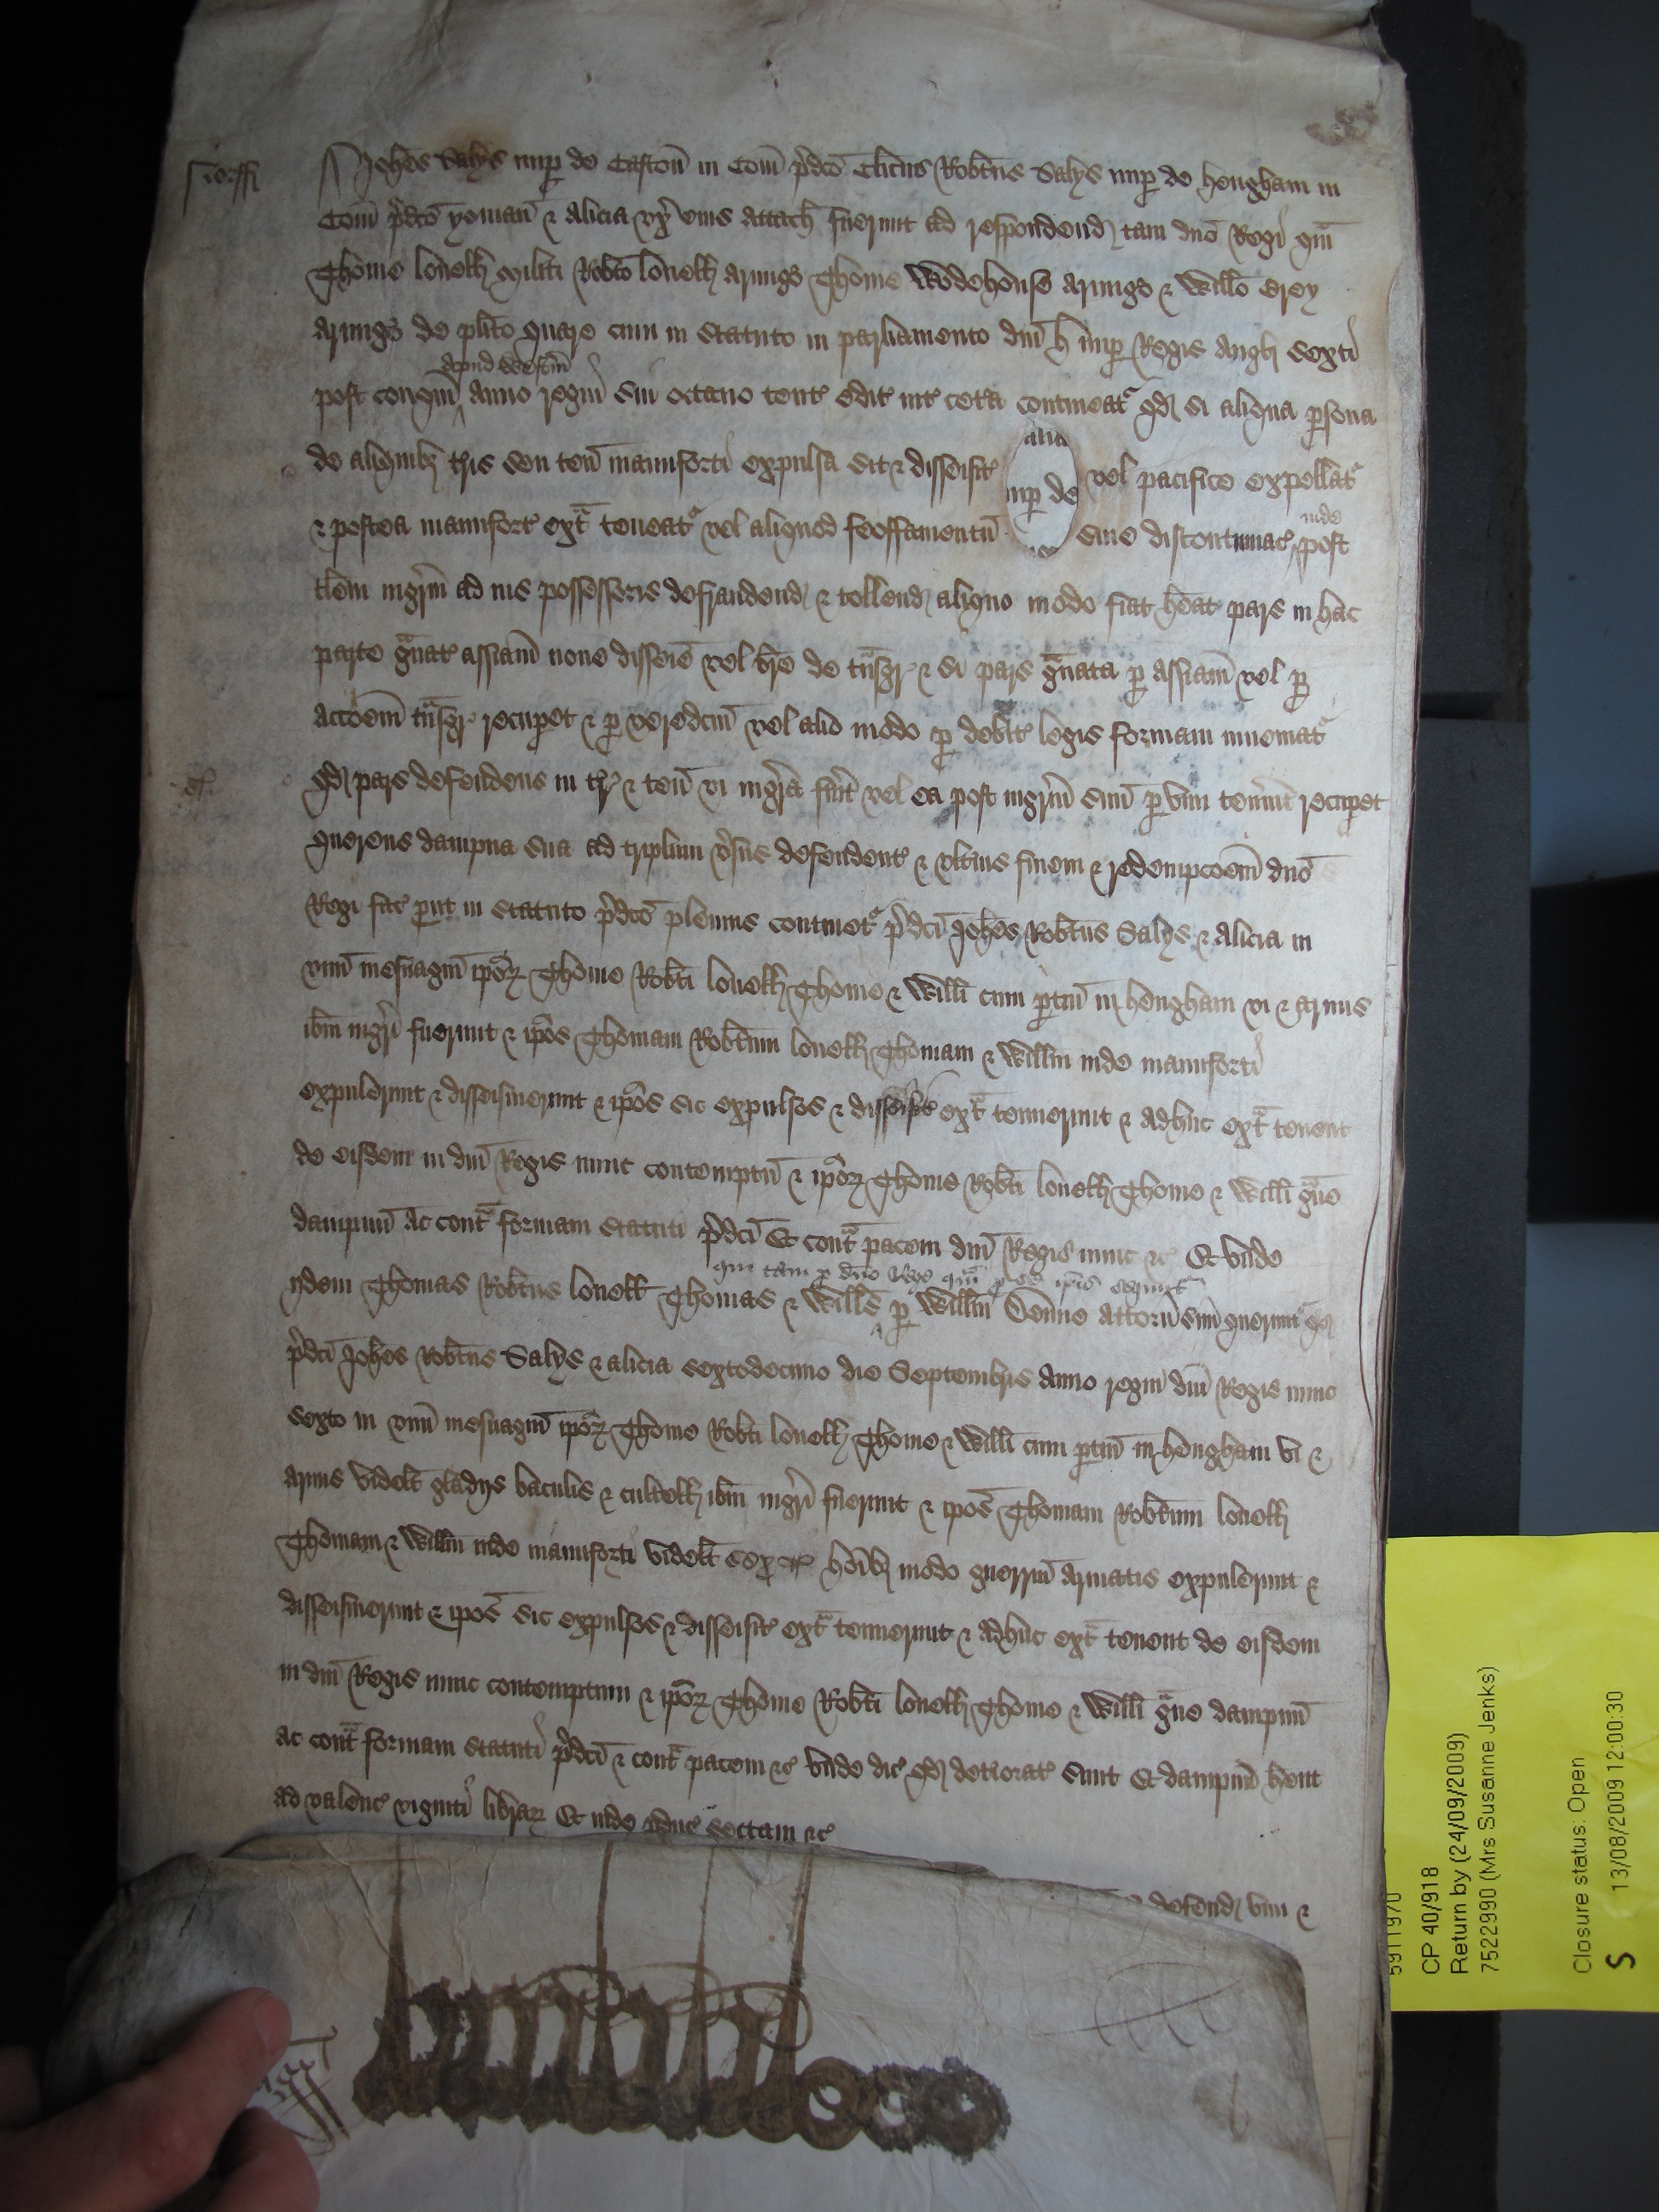 Norff
Joh̄es Salys nup̱ de Caston̄ in Com̄ p̱dc̄o Cl̄icus Rob̄tus Salys nup̱ de Hengham in
Com̄ p̱dc̄o yoman̄ & Alicia ux̱ eius attach̄ fuerunt ad respondend tam dn̄o Regi qm̄
Thome Louell Militi Rob̄to Louell Armigō Thome Wodehouse Armigō & Will̄o Grey
Armigō de pl̄ito quare cum in statuto in parliamento dn̄i H nup̱ Regis Angl̄ sexti
apud Westm̄
post conqm̄ anno regni sui octauo tent̄ edit̄ int̄ cet̄a contineat̄ qd si aliqua p̱sona
alia
de aliquib3 t̄ris seu ten̄ manuforti expulsa sit & disseisit̄ vel pacifice expellat̄
nup̱ de
inde
& postea manufort̄ ext̄a teneat̄ vel aliquod feoffamentū siue discontinuac̄ post
t̄lem ingr̄m ad ius possessoris defraudend & tollend aliquo modo fiat h̄eat pars in hac
parte g̱uat̄ assiam̄ noue disseīe vel br̄e de t̄nsgr̄ & si pars g̱uata p̱ assiam̄ vel p̱
acc̄oem̄ t̄nsgr̄ recup̱et & p̱ veredcm̄ vel alio modo p̱ debit̄ legis formam inueniat̄
qd pars defendens in t̄r & ten̄ vi ingr̄a fu̱it vel ea post ingr̄m suū p̱ vim tenu̱it recup̱et
querens dampna sua ad triplum v̱sus defendent̄ & ulṯius finem & redempc̄oem̄ dn̄o
Regi fac̄ p̱ut in statuto p̱dc̄o plenius continet̄ p̱dc̄i Joh̄es Rob̄tus Salys & Alicia in
unū mesuagiū ip̄or̄ Thome Rob̄ti Louell Thome & Will̄i cum p̱tin̄ in Hengham vi & armis
ib̄m ingr̄i fuerunt & ip̄os Thomam Rob̄tum Louell Thomam & Will̄m inde manuforti
expulerunt & disseisiuerunt & ip̄os sic expulsos & disseisit̄ ext̄a tenuerunt & adhuc ext̄a tenent
de eisdem in dn̄i Regis nunc contemptū & ip̄or̄ Thome Rob̄ti Louell Thome & Will̄i g̱ue
dampnū ac cont̄a formam statuti p̱dc̄i Et cont̄a pacem dn̄i Regis nunc &c Et unde
qui tam p̱ dn̄o Rege qm̄ p̱ se ip̄is sequnt̄
ijdem Thomas Rob̄tus Louell Thomas & Will̄s p̱ Will̄m attorn̄ suū querunt̄ qd
p̱dc̄i Joh̄es Rob̄tus Salys & Alicia sextodecimo die Septembris anno regni dn̄i Regis nunc
sexto in unū mesuagiū ip̄or̄ Thome Rob̄ti Louell Thome & Will̄i cum p̱tin̄ in Hengham vi &
armis videl̄t gladijs baculis & cultell ib̄m ingr̄i fuerunt & ip̄os Thomam Rob̄tum Louell
Thomam & Will̄m inde manuforti videl̄t ho̱ib3 modo guerrino armatis expulerunt &
disseisiuerunt & ip̄os sic expulsos & disseisit̄ ext̄a tenuerunt & adhuc ext̄a tenent de eisdem
in dn̄i Regis nunc contemptum & ip̄or̄ Thome Rob̄ti Louell Thome & Will̄i g̱ue dampnū
ac cont̄a formam statuti p̱dc̄i & cont̄a pacem &c unde dic̄ qd deṯiorat̄ sunt Et dampnū h̄ent
ad valenc̄ viginti librar̄ Et inde pduc̄ sectam &c
defend vim &
5911970
CP 40/918
Return by (24/09/2009)
7522990 (Mrs Susanne Jenks)
Closure status: Open
S 13/08/2009 12:00:30